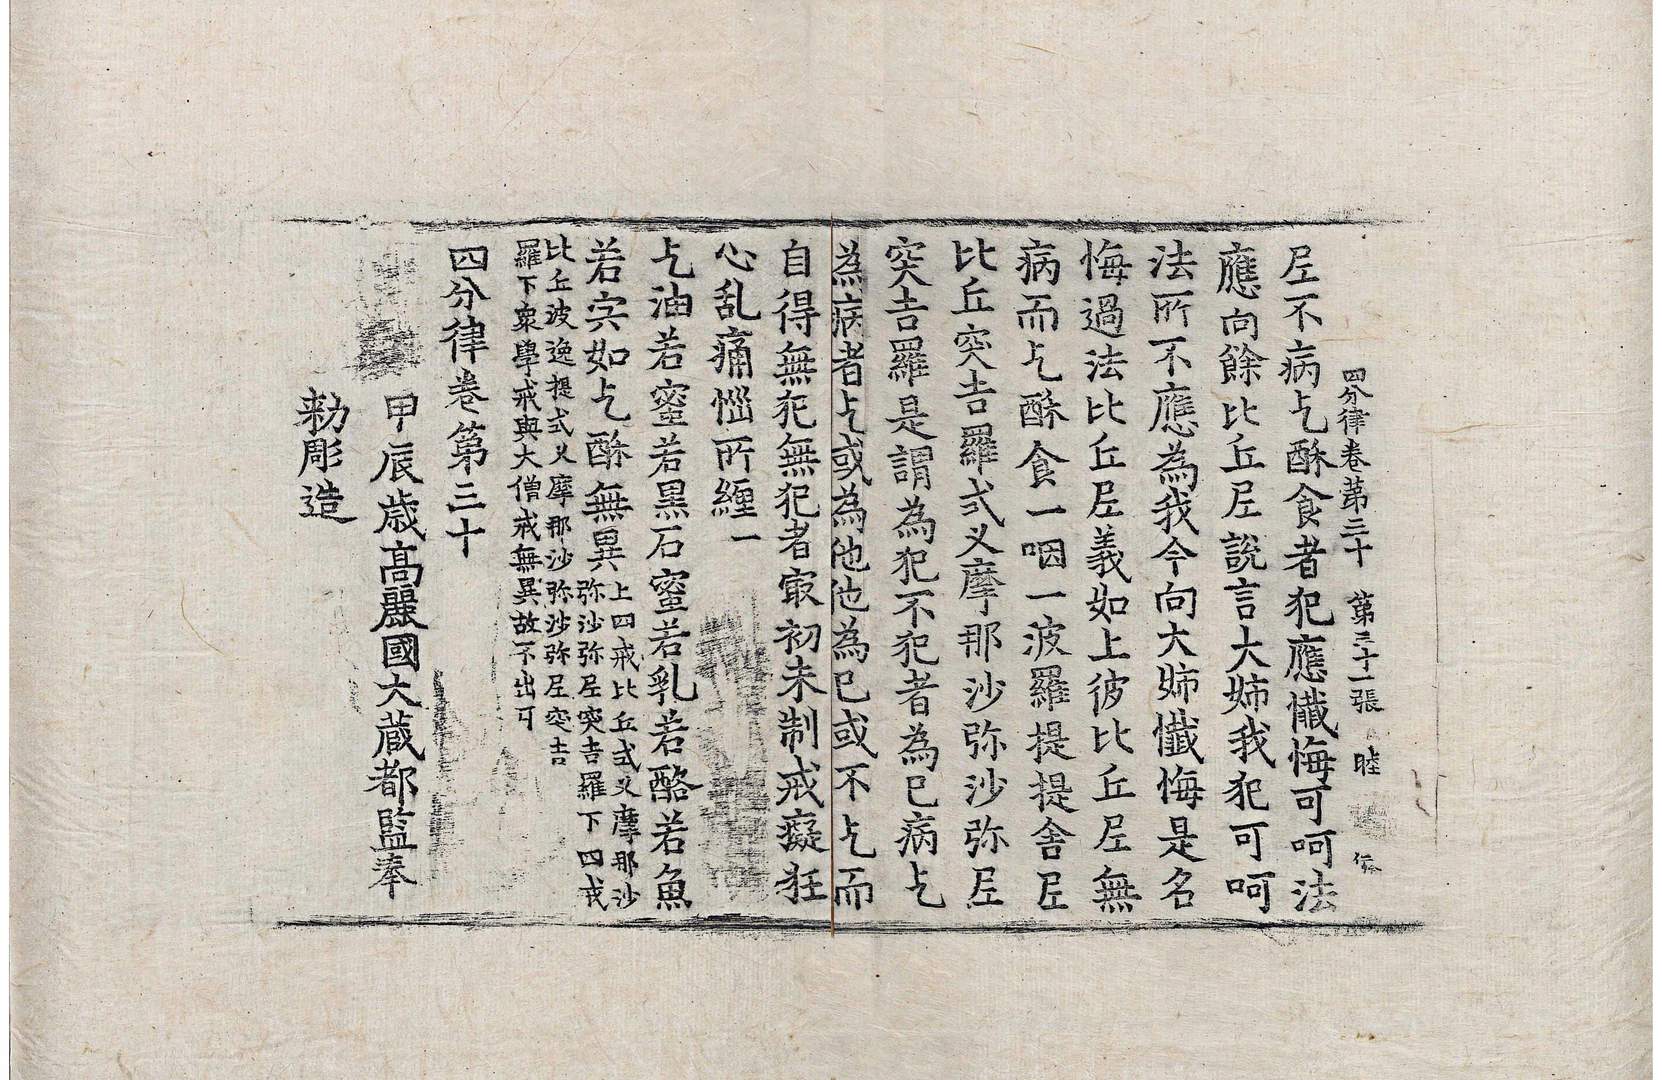 四分律卷第三十　第三十一張　睦
尼不病乞酥食者犯應懺悔可呵法
應向餘比丘尼說言大姊我犯可呵
法所不應為我今向大姊懺悔是名
悔過法比丘尼義如上彼比丘尼無
病而乞酥食一咽一波羅提提舍尼
比丘突吉羅式叉摩那沙弥沙弥尼
突吉羅是謂為犯不犯者為己病乞
為病者乞或為他他為己或不乞而
自得無犯無犯者㝡初未制戒癡狂
心乱痛惱所纏一
乞油若蜜若黒石蜜若乳若酪若魚
若宍如乞酥無異上四戒比丘式叉摩那沙
弥沙弥尼突吉羅下四戒
比丘波逸提式叉摩那沙弥沙弥尼突吉
羅下衆學戒與大僧戒無異故不出耳
四分律卷第三十
甲辰歳高麗國大蔵都監奉
勑彫造